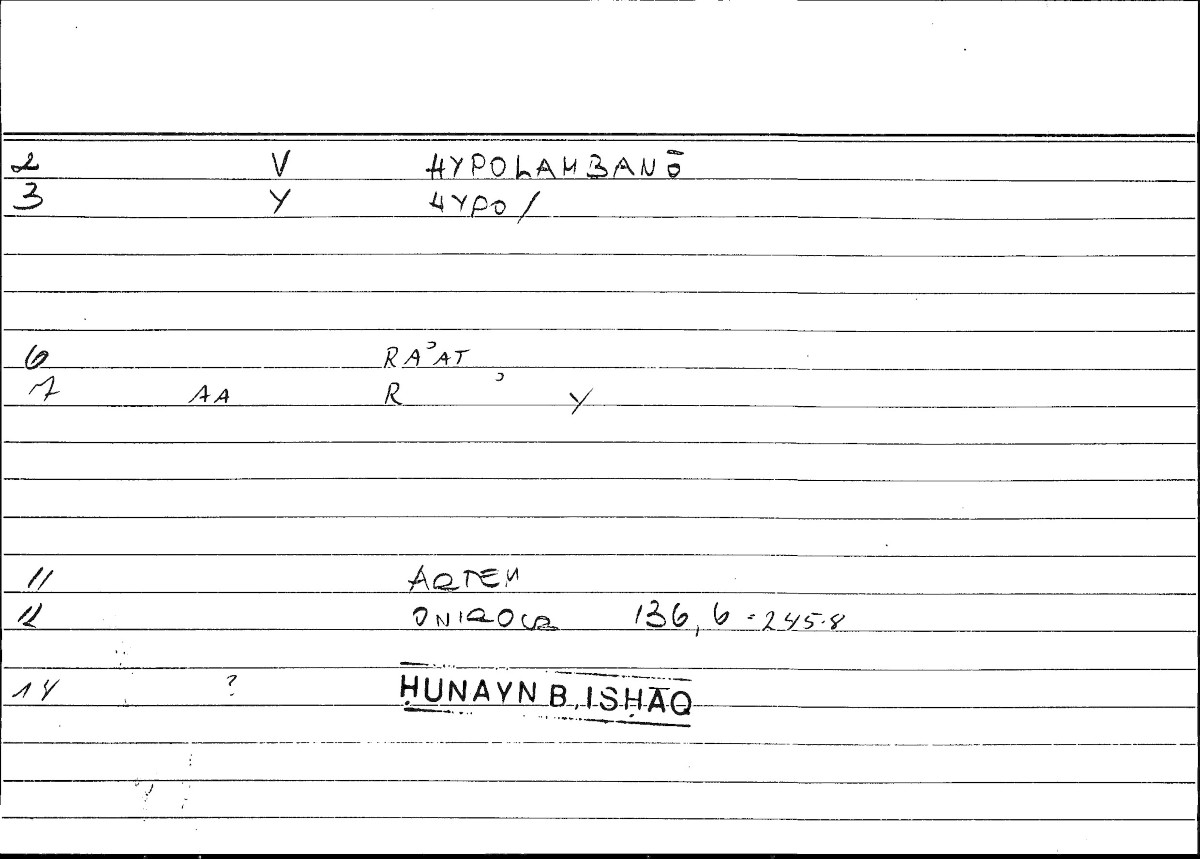 2 V HYPOLAMBANŌ
3 Y HYPO/
6 RAʾAT
7 AA R ʾ Y
11 ARTEM
12 ONIROCR 136,6 = 245.8
14 ? ḤUNAYN B. ISḤĀQ